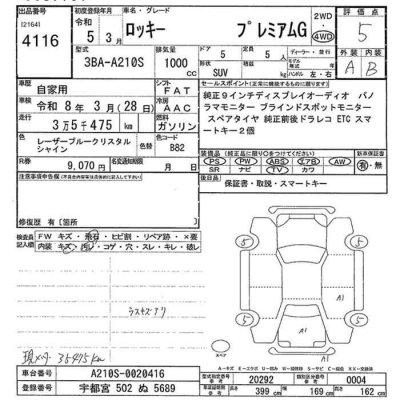 出品番号 初度登録年月 車名・グレード 2WD 評価点
[2164] 令和 ロッキー プレミアムG 4WD 5
4116 5年3月
型式 排気量 ドア 定員 外装 内装
3BA-A210S 1000 cc 5 5 A B
形状 SUV ハンドル 左・右
車歴 自家用 シフト FAT セールスポイント
車検 令和 8年 3月 (28日) 冷房 AAC 純正9インチディスプレイオーディオ パノ
走行 3万5千475km 燃料 ガソリン ラマモニター ブラインドスポットモニター
色 レーザーブルークリスタル 色替 色コード スペアタイヤ 純正前後ドラレコ ETC スマ
シャイン B82 ートキー2個
R券 9,070円 名変期限
装備品 新車保証書
PS PW ABS エアB AW 有・無
SR ナビ TV カワ
注意事項申告欄 後日品 保証書・取説・スマートキー
修復歴 有 [箇所 ]
検査員 FW キズ・飛石・ヒビ割・リペア跡・×要
記入順 内装 キズ・汚・コゲ・穴・スレ・キレ・破レ
5 5
A1
5 5
A1
現メーター 35475km
スペア
A-キズ E-エクボ U-凹み W-補修跡 S-サビ C-腐食 XX-交換済
車台番号 A210S-0020416 型式指定番号 20292 類別区分番号 0004
登録番号 宇都宮 502 ぬ 5689 長さ 399 cm 幅 169 cm 高さ 162 cm